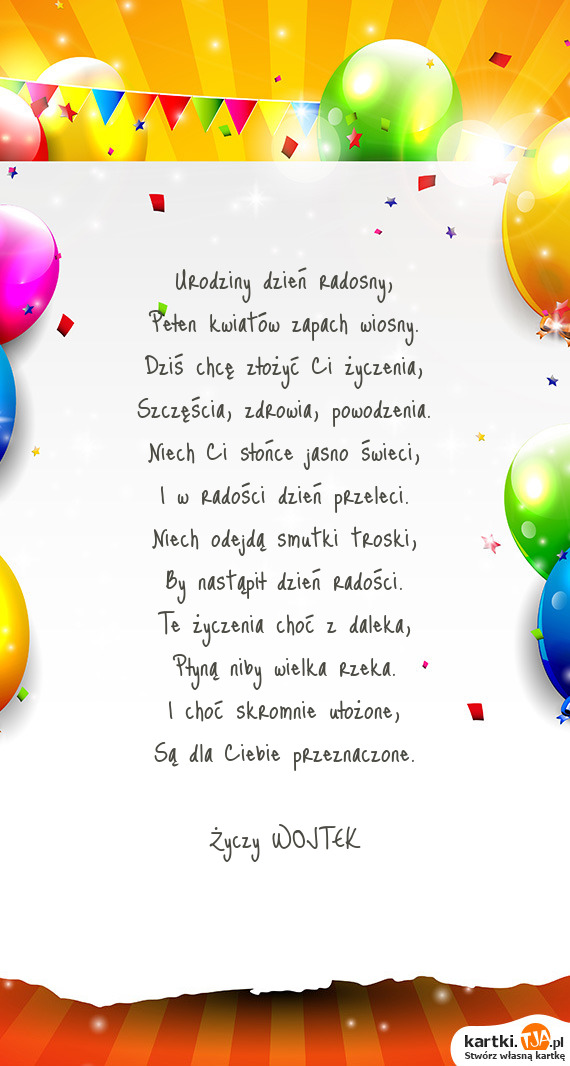 Urodziny dzień radosny,
Pełen kwiatów zapach wiosny.
Dziś chcę złożyć Ci życzenia,
Szczęścia, zdrowia, powodzenia.
Niech Ci słońce jasno świeci,
I w radości dzień przeleci.
Niech odejdą smutki troski,
By nastąpił dzień radości.
Te życzenia choć z daleka,
Płyną niby wielka rzeka.
I choć skromnie ułożone,
Są dla Ciebie przeznaczone.
Życzy WOJTEK
kartki.TJA.pl
Stwórz własną kartkę